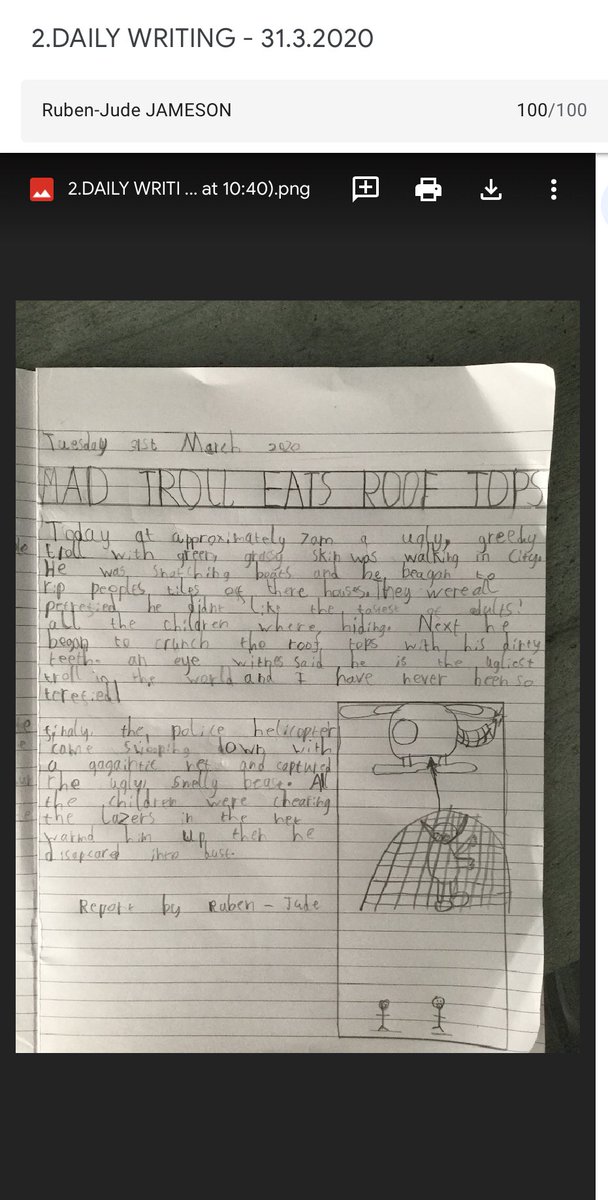 2.DAILY WRITING - 31.3.2020
Ruben-Jude JAMESON 100/100
2.DAILY WRITI ... at 10:40).png
Tuesday 31st March 2020
MAD TROLL EATS ROOF TOPS
Today at approximately 7am a ugly, greedy
troll with green, grasy skin was walking in City.
He was snatching boats and he beagan to
rip peoples tiles off there houses. They were all
petrefied he didnt like the tastest of adults!
all the children where hiding. Next he
began to crunch the roof tops with his dirty
teeth. an eye witnes said he is the ugliest
troll in the world and I have never been so
terefied!
finaly, the police helicopter
came swooping down with
a gagaintic net and captured
The ugly, smelly beast. All
the children were cheating
the Lazers in the net
warmd him up then he
disapeared into dust.
Report by Ruben - Jude